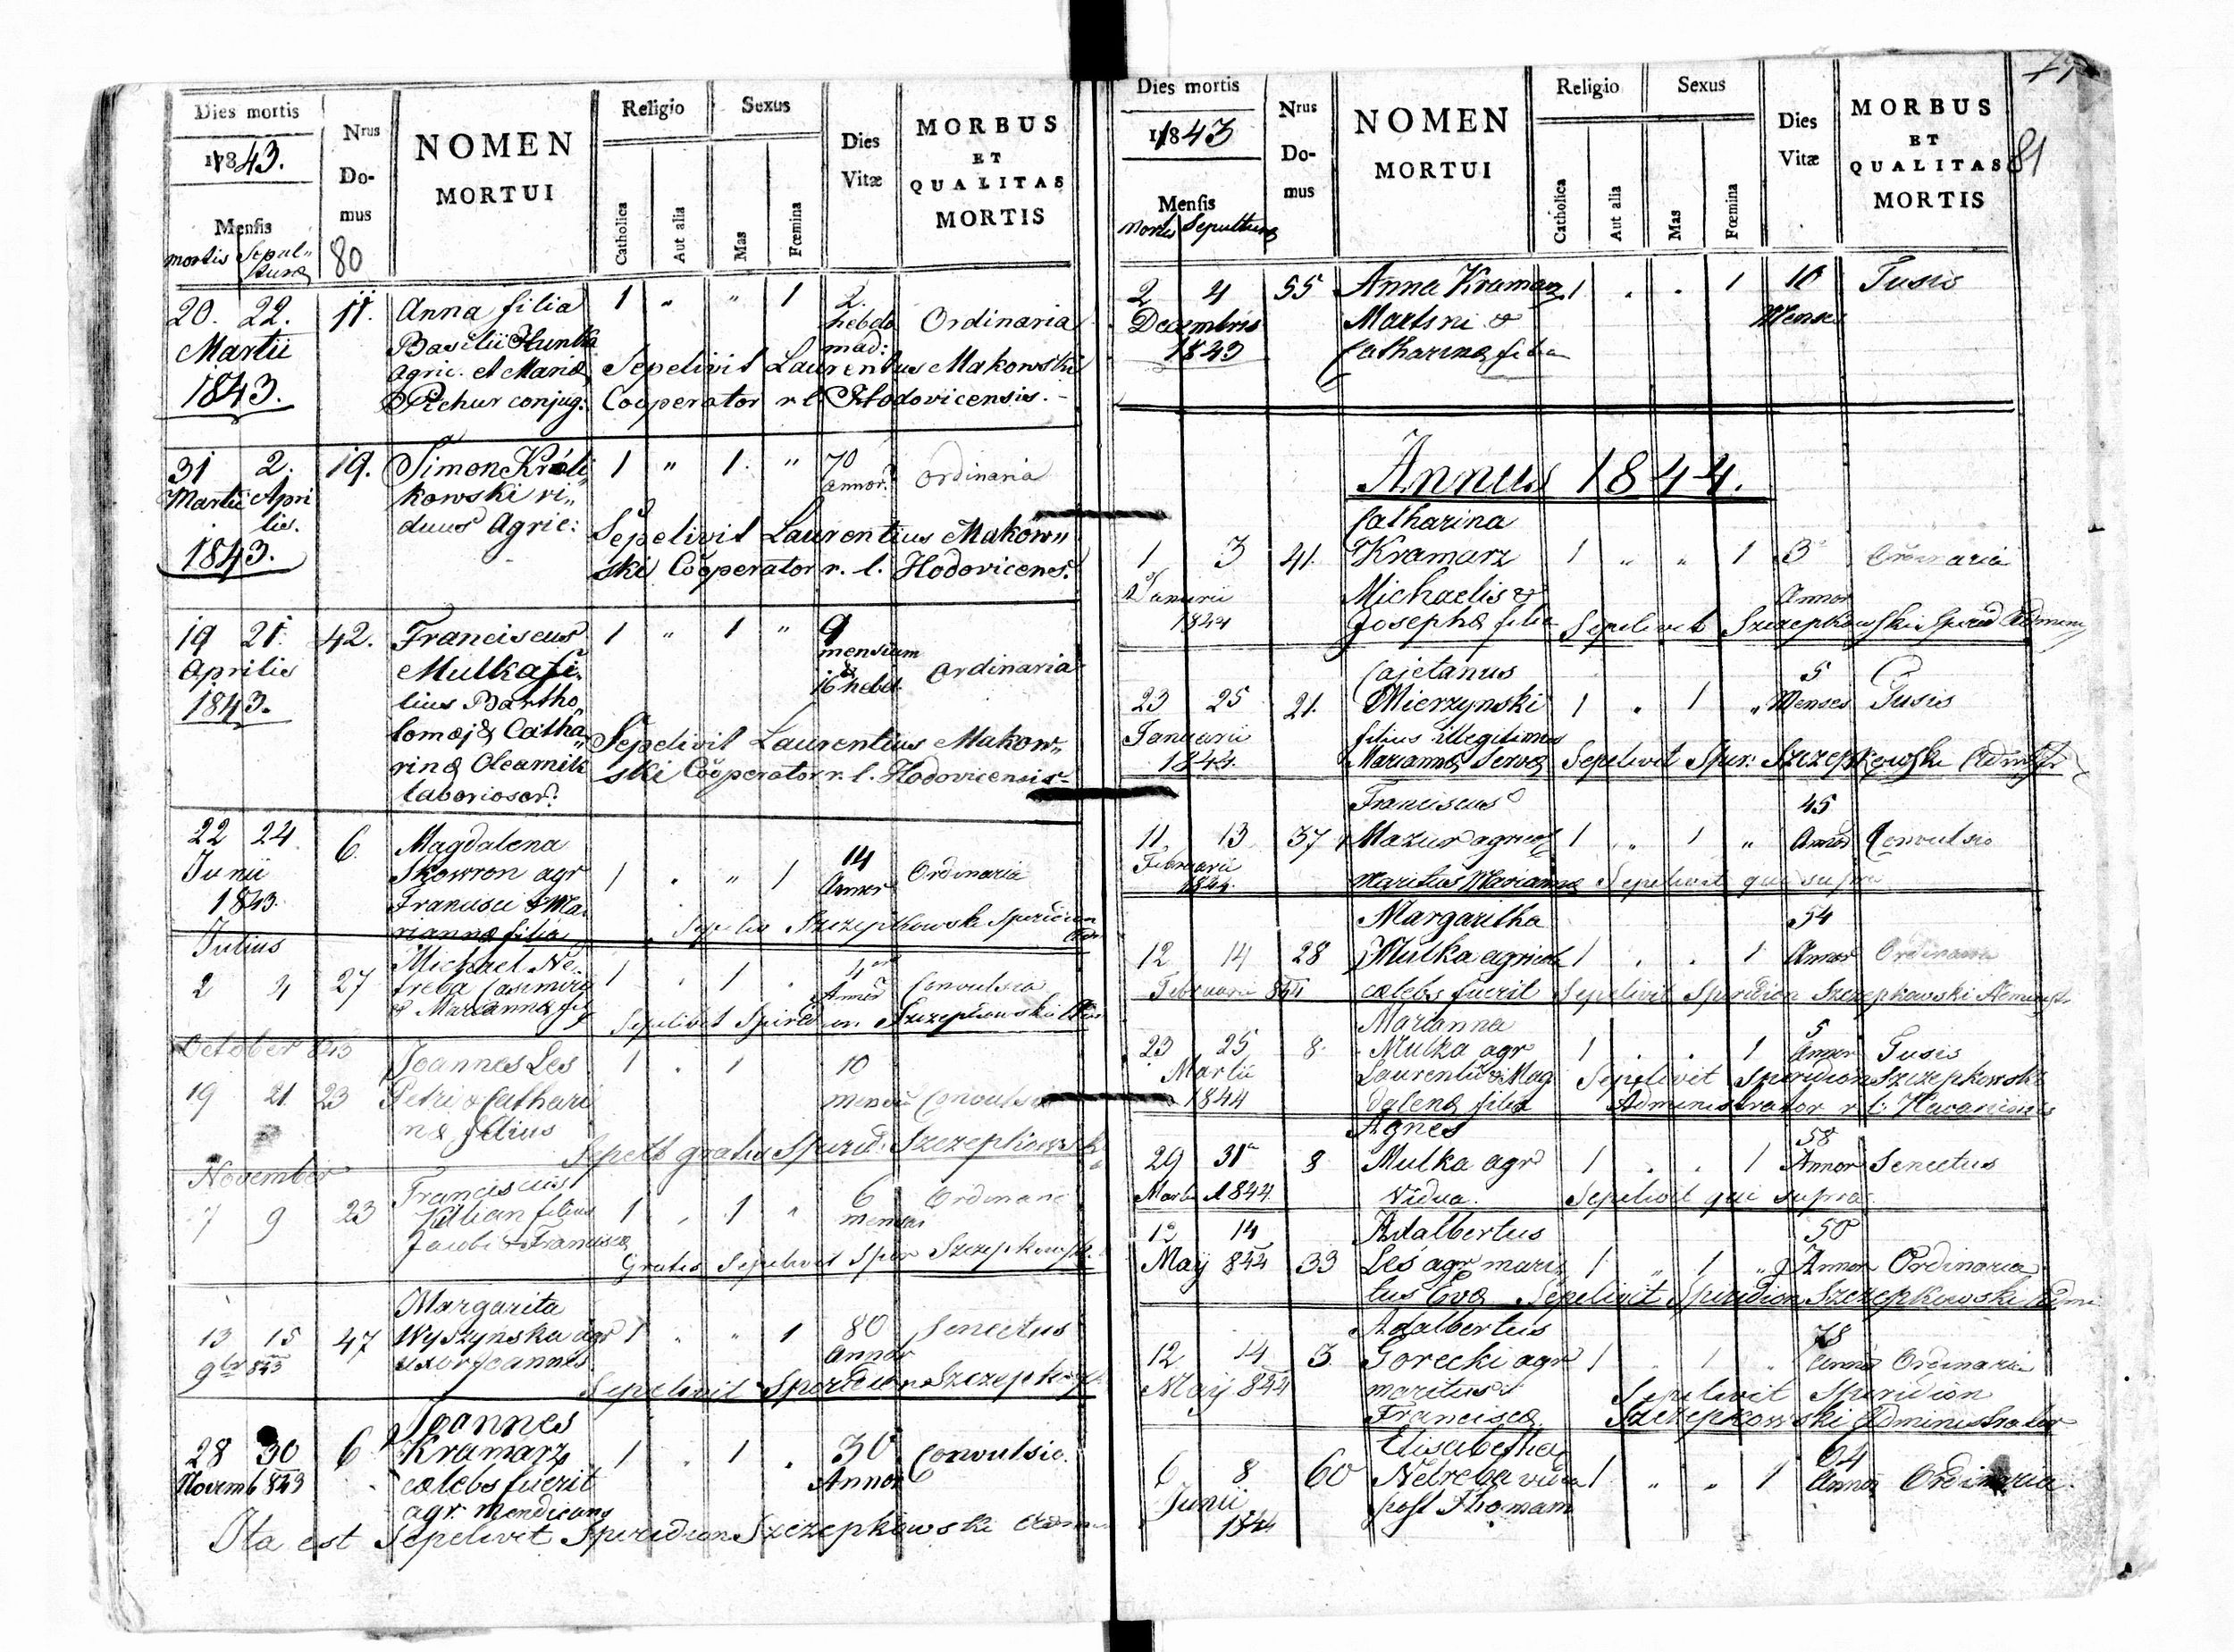 Dies mortis
1843.
Mensis
mortis Sepul-
turæ
Nrus
Do-
mus
80
NOMEN
MORTUI
Religio
Catholica
Aut alia
Sexus
Mas
Fœmina
Dies
Vitæ
MORBUS
ET
QUALITAS
MORTIS
20. 22. 11. Anna filia 1 „ „ 1 2.
Martii Basilii Hunka hebdo Ordinaria
mad:
1843. agric. et Mariæ Sepelivit Laurentius Makowski
Pichur conjug: Cooperator r l. Hodovicensis.
31 2. 19. Simon Króli„ 1 „ 1. „ 70
Martii Apri kowski vi„ annor. Ordinaria
lis. duus Agric: Sepelivit Laurentius Makow„
1843. ski Cooperator r. l. Hodovicens.
19 21. 42. Franciscus 1 „ 1 „ 9
Aprilis Mulka fi- mensium Ordinaria
1843. lius Bartho„ & 16 hebd.
lomæj & Catha„ Sepelivit Laurentius Makow„
rinæ Olearnik ski Cooperator r. l. Hodovicensis
laboriosor:
22 24 6. Magdalena
Junii Skowron agr 1 . „ 1 14 Ordinaria
1843. Francisci & Ma Annor
riannæ filia Szczepkowski
Julius Michael Ne
2 4 27 treba Casimiri 1 . 1 . Convulsio
& Mariannæ fil Sepelivit Spiridion Szczepkowski
October 843 Joannes Les 1 . 1 10
19 21 23 Petri & Cathari Convulsio
næ filius gratis Spirid: Szczepkowski
November Franciscus
7 9 23 Kilian filius 1 . 1 „ 6 Ordinari
Jacobi & Francisca menses
Gratis Sepelivit Spir Szczepkowsk.
Margarita
13 15 47 Wyszyńska agr 1 . „ 1 80 Senectus
9br 843 uxor Joannes Annor
Sepelivit Spiridion
Joannes
28 30 6 Kramarz 1 . 1 . 30 Convulsio.
Novemb 843 cælebs fuerit Annor
agr. Mendicans
Ita est Sepelivit Spiridion Szczepkowski
Dies mortis
1843
Mensis
Mortis Sepulturæ
Nrus
Do-
mus
NOMEN
MORTUI
Religio
Catholica
Aut alia
Sexus
Mas
Fœmina
Dies
Vitæ
MORBUS
ET
QUALITAS
MORTIS
81
2 4 55 Anna Kramarz 1 . . 1 10 Tusis
Decembris Martini & Menses
1843 Catharinæ filia
Annus 1844.
Catharina
1 3 41. Kramarz 1 „ „ 1 3 Ordinaria
Januarii Michaelis & Annor
1844 Josephæ filia Sepelivit Szczepkowski Spirid
Cajetanus 5
23 25 21. Mierzynski 1 . 1 „ Menses Tusis
Januarii filius illegitimus
1844. Mariannæ Servæ Sepelivit Spir: Szczepkowski
Franciscus 45
11. 13 37 Mazur agricol 1 „ 1 „ Annor Convulsio
Februarii
1844. Maritus Mariannæ Sepelivit qui supra
Margaritha 54
12 14 28 Mulka agricol 1 . . 1 Annor Ordinaria
Februarii 844 cælebs fuerit Sepelivit Spiridion Szczepkowski
Marianna 5
23 25 8. Mulka agr 1 . . 1 Annor Tusis
Martii Laurentii & Mag Sepelivit Spiridion Szczepkowski
1844 dalenæ filia Administrator r l:
Agnes 58
29 31 8 Mulka agr 1 . . 1 Annor Senectus
1844. Vidua. Sepelivit qui supra
12 14 Adalbertus 50
Maij 844 33 Leś agr mari 1 „ 1 „ Annor Ordinaria
tus Evæ Sepelivit Spiridion Szczepkowski
Adalbertus 78
12 14 3. Gorecki agr 1 . 1 „ Ordinaria
Maij 844 maritus Sepelivit Spiridion
Franciscæ Szczepkowski Administrator
Elisabetha 64
6. 8 60 Netreba vidua 1 „ „ 1 Annor Ordinaria
Junii post Thomam
1844